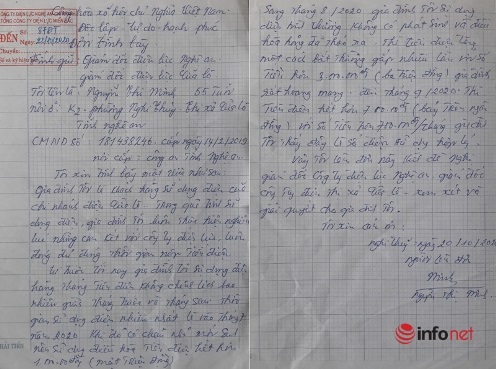 CÔNG TY ĐIỆN LỰC NGHỆ AN
ĐẾN Số: 8481
Ngày: 22/10/2020
Chuyển:
Cộng hòa xã hội chủ Nghĩa Việt Nam
Độc lập Tự do hạnh phúc
Đơn Trình bày
Kính gửi Giám đốc điện lực Nghệ an
giám đốc điện lực Cửa lò
Tôi tên là: Nguyễn Thị Minh 65 Tuổi
K2 phường Nghi Thủy Thị xã Cửa Lò
Tỉnh nghệ an
CMND số 181438246 cấp ngày 14/2/2019
nơi cấp: công an Tỉnh Nghệ an
Tôi xin Trình bày một việc như sau
Gia đình Tôi là khách hàng sử dụng điện của
chi nhánh điện Cửa Lò Trong quá Trình sử
dụng điện, gia đình Tôi luôn Thực hiện nghiêm
túc những cam kết với công ty điện lực, luôn
đóng đầy đúng thời gian nộp Tiền điện
Từ trước Tới nay gia đình Tôi sử dụng điện
hàng Tháng Tiền điện không chênh lệch bao
nhiêu giữa tháng trước và tháng sau Thời
gian sử dụng điện nhiều nhất là vào Tháng 7
năm 2020 Khi đó có cháu
nên sử dụng điều hòa Tiền điện hết hơn
1.000.000đ (một Triệu Đồng)
Sang tháng 8/2020 gia đình Tôi sử dụng
điện bình Thường, Không có phát sinh và điều
hòa hỏng đã tháo ra Thì Tiền điện Tăng
một cách bất Thường gấp nhiều lần với số
Tiền hơn 3.000.000đ (ba Triệu Đồng) gia đình
rất hoang mang: đến tháng 9/2020 Thì
Tiền điện hết hơn 700.000đ (bảy Trăm nghìn
đồng) với số Tiền hơn 700.000đ/tháng gia đình
Tôi thấy đây là số chuẩn và hợp lý.
Vậy Tôi làm đơn này Kính đề nghị
giám đốc công ty điện lực Nghệ an, giám đốc
công Ty điện Thị xã Cửa lò xem xét và
giải quyết cho gia đình Tôi.
Tôi xin cảm ơn:
nghi thủy ngày 20/10/2020
người làm đơn
Minh
Nguyễn Thị Minh
HẢI TIẾN
infonet